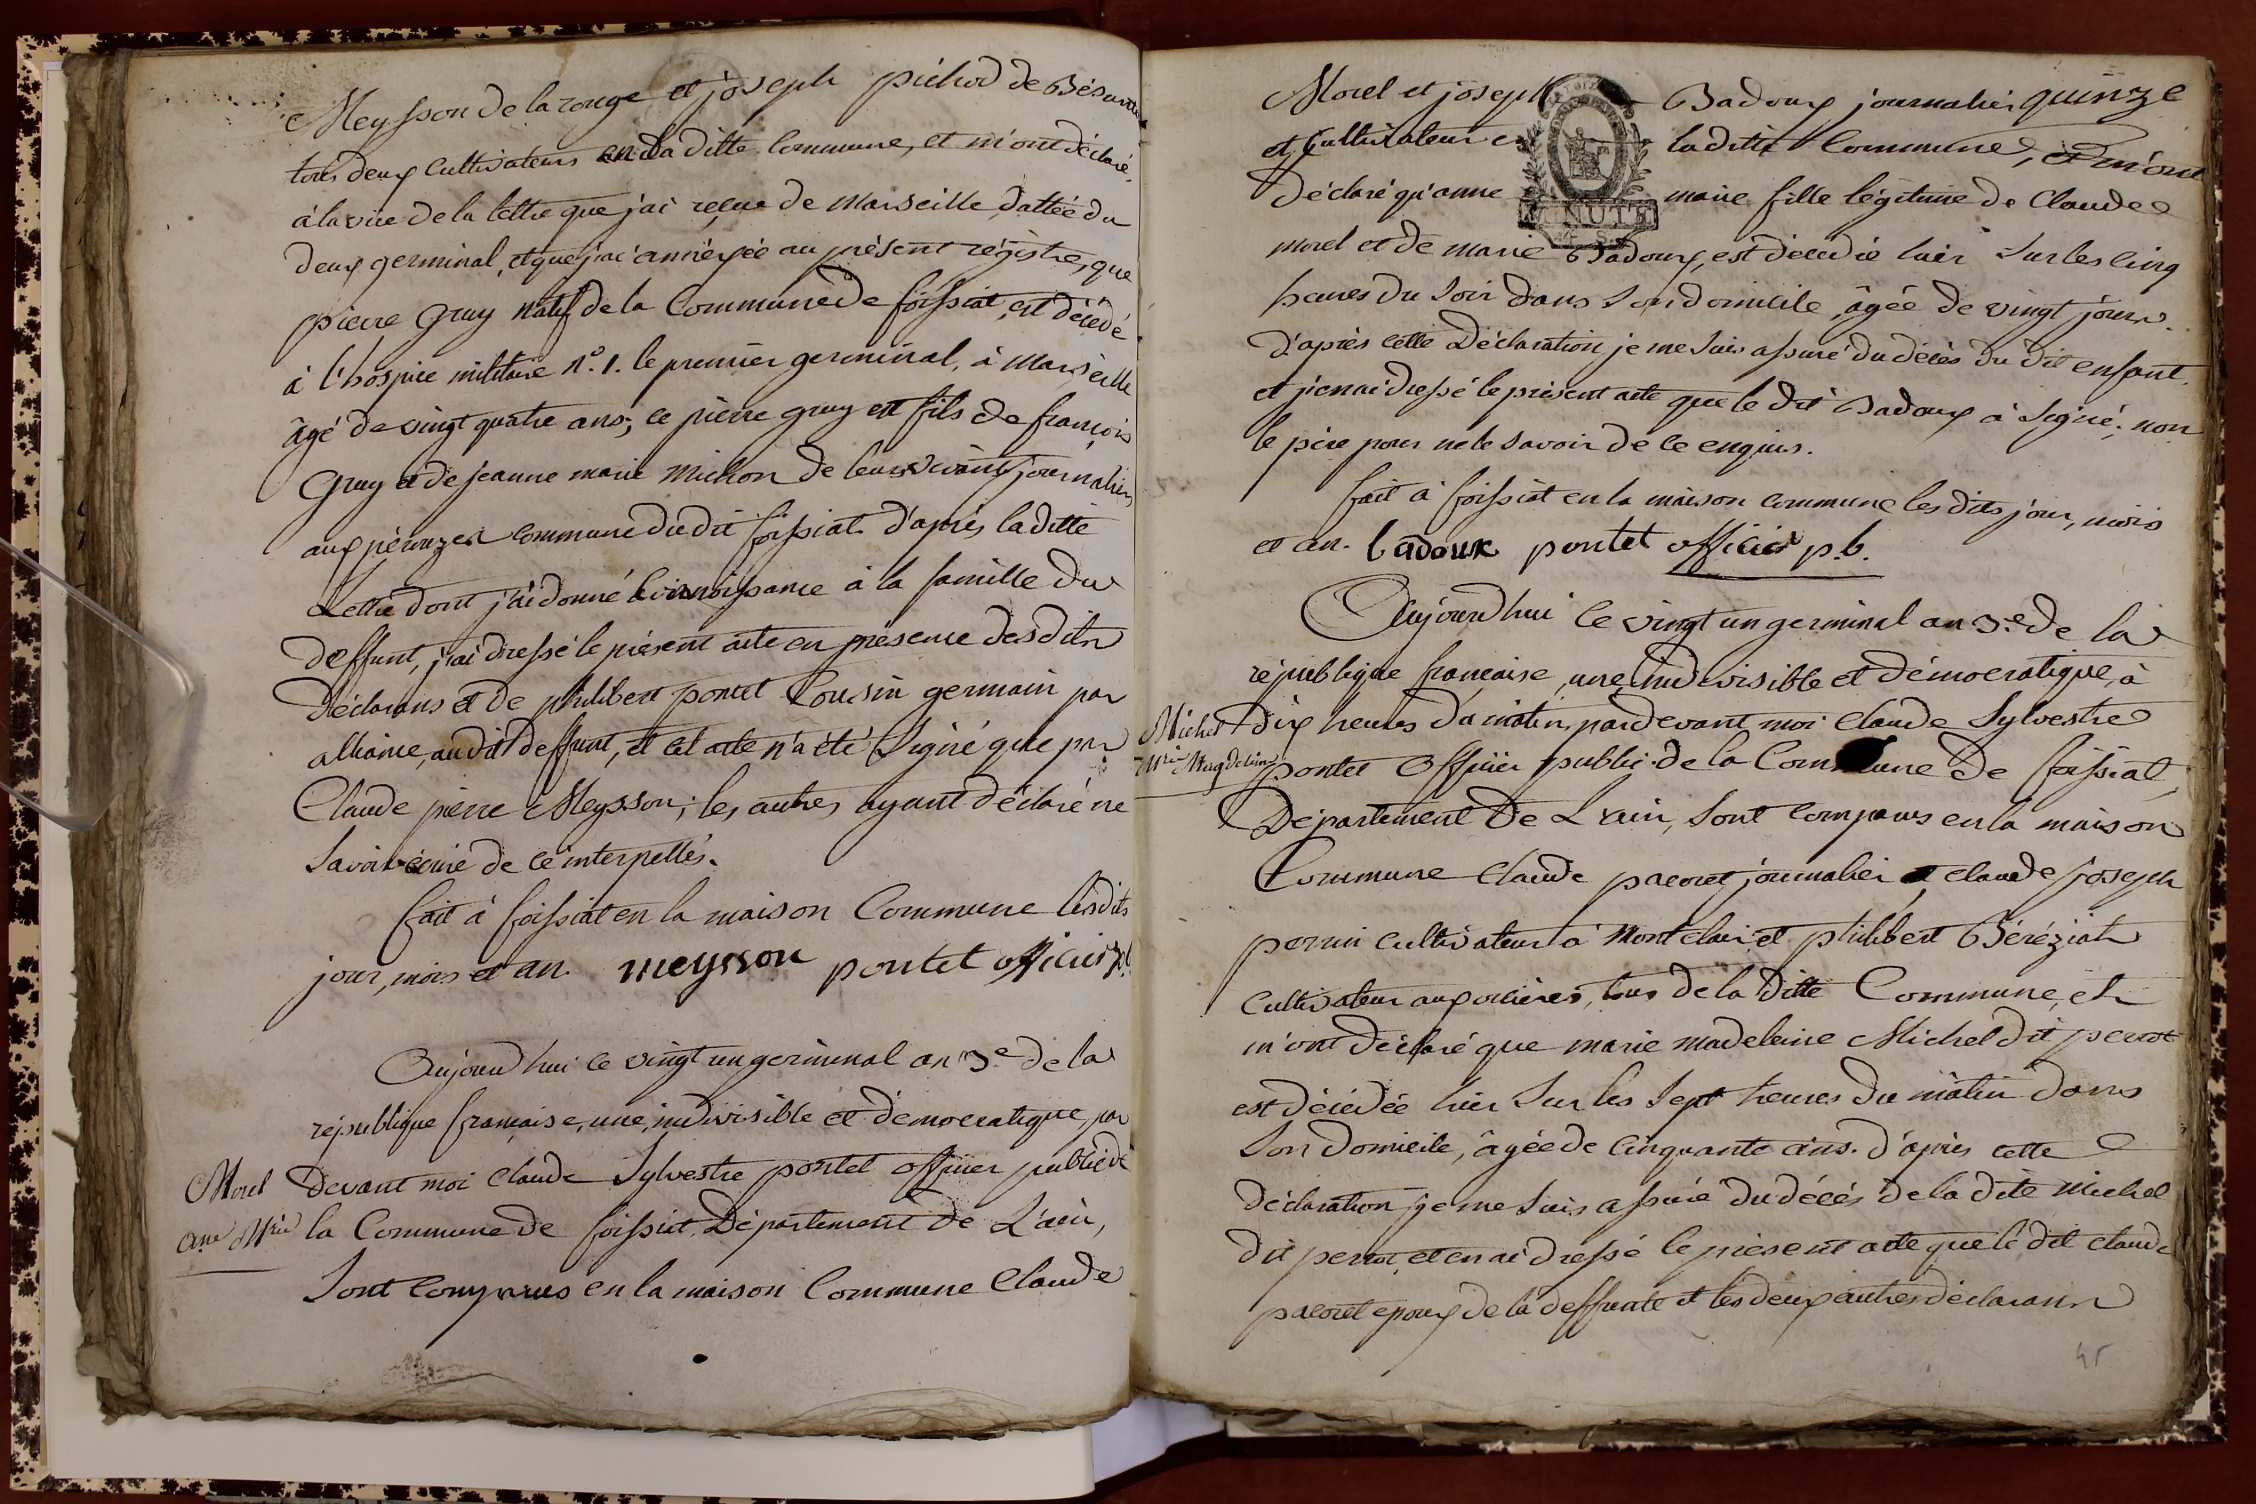 Meysson de la rouge et joseph pichod de Bésavan
tous deux cultivateurs en la ditte Commune, et m'ont déclaré
à la vüe de la lettre que j'ai reçue de Marseille dattée du
deux germinal, et que j'ai annexée au présent régistre, que
pierre Gruy natif de la Commune de foissiat, est décédé
à l'hospice militaire N.º 1. le premier germinal, à Marseille
âgé de vingt quatre ans; ce pierre gruy est fils de françois
Gruy et de jeanne marie Michon de leurs vivants journaliers
aux pérouzes commune du dit foissiat. d'après la ditte
Lettre dont j'ai donné connoissance à la famille du
deffunt, j'ai dressé le présent acte en présence des dits
déclarans et de philibert pontet Cousin germain par
alliance, au dit deffunt, et cet acte n'a été signé que par
Claude pierre Meysson; les autres ayant déclaré ne
Savoir écrire de ce interpellés.
fait à foissiat en la maison Commune lesdits
jour, mois et an. meysson pontet officier p.b.
Aujourd'hui ce vingt un germinal an 3.e de la
république française, une, indivisible et démocratique, par
Morel
devant moi Claude Sylvestre pontet officier public de
ane Mrie
la Commune de foissiat, Département de L'ain,
Sont comparus en la maison Commune Claude
Morel et joseph Badoux journalier quinze
et Cultivateur laditte Commune, et m'ont
déclaré qu'anne marie fille légitime de Claude
morel et de marie Badoux, est décédée hier sur les cinq
heures du soir dans son domicile, âgée de vingt jours.
D'après cette Déclaration je me suis assuré du décès du dit enfant.
et j'en ai dressé le présent acte que le dit Badoux à signé; non
le père pour ne le savoir de ce enquis.
fait à foissiat en la maison commune les dits jour, mois
et an. badoux pontet officier p.b.
Aujourd'hui le vingt un germinal an 3.e de la
république française, une, indivisible et démocratique, à
Michel
dix heures du matin, pardevant moi Claude Sylvestre
Mrie Magdeleine
pontet Officier public de la Commune de foissiat,
Département De L'ain, Sont comparus en la maison
Commune Claude pacoret journalier et claude joseph
perrin cultivateur à Montclair et philibert Béréziat
cultivateur aux orcières, tous de la ditte Commune, et
m'ont déclaré que marie madeleine Michel dit perrot
est décédée hier sur les sept heures du matin dans
Son domicile, âgée de Cinquante ans. d'après cette
déclaration je me suis assuré du décès de la dite Michel
dit perrot, et en ai dressé le présent acte que le dit claude
pacoret epoux de la deffunte et les deux autres déclarans
45